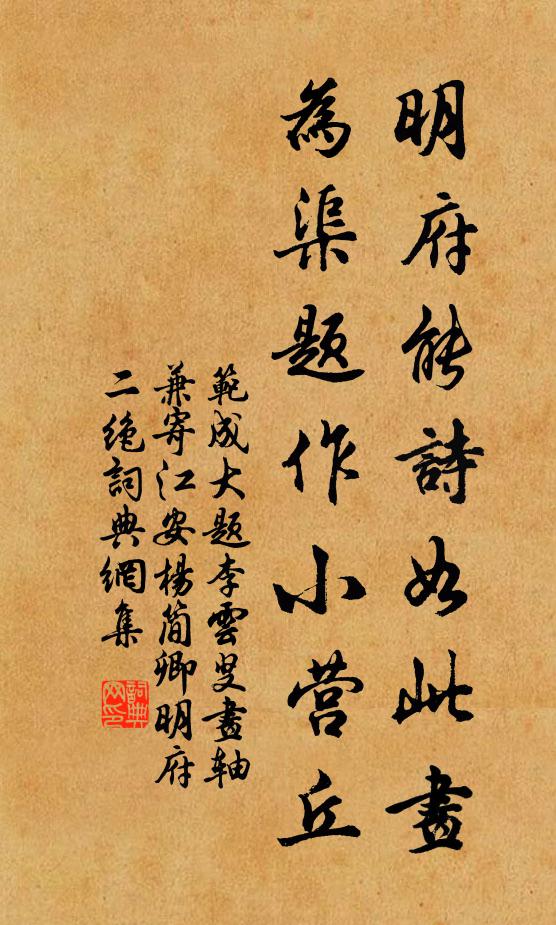 明府能詩如此畫
為渠題作小营丘
範成大題李雲叟畫轴
兼寄江安楊簡卿明府
二绝詞典網集
詞典网印